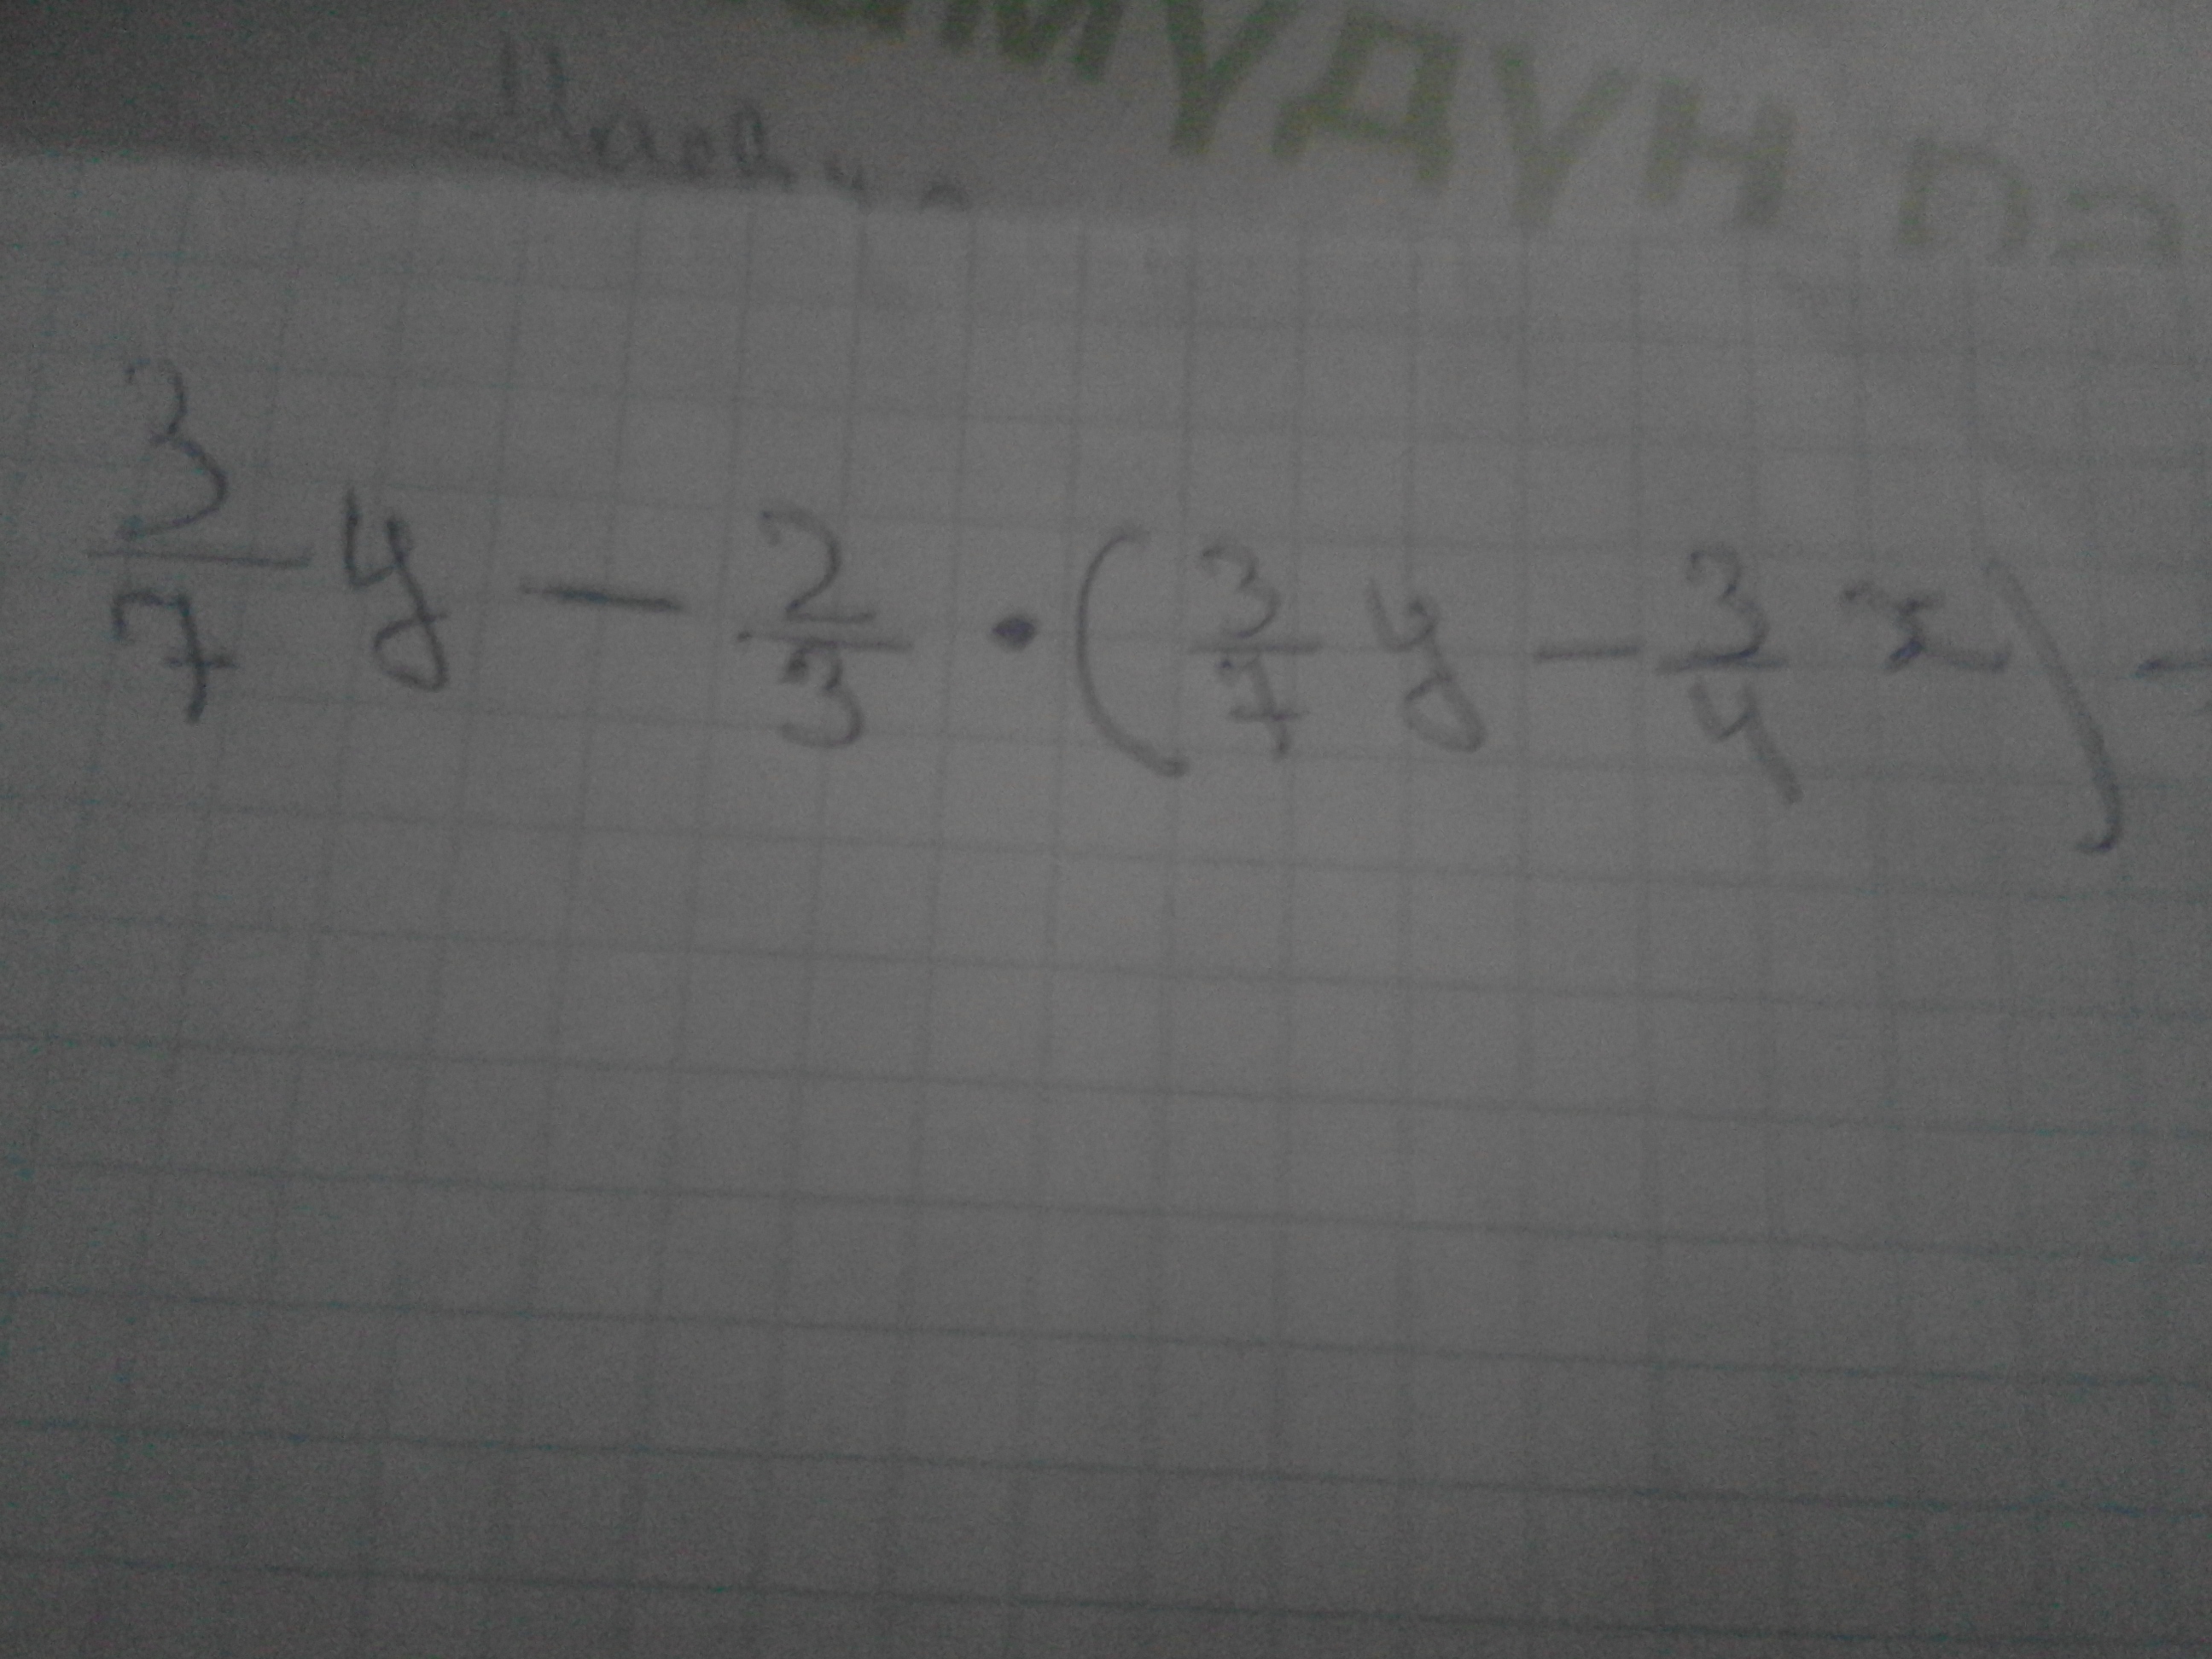 МҮДҮН
3/7 y - 2/3 · (3/7 y - 3/4 x) -